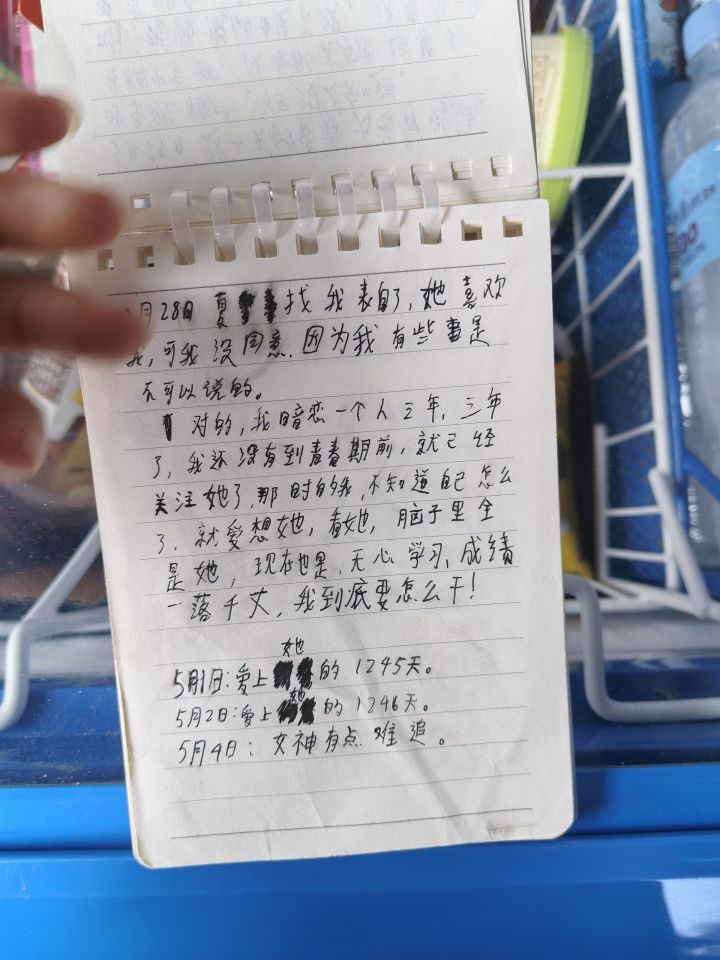 月28日 夏 找我表白了，她喜欢
我，可我没同意．因为我有些事是
不可以说的。
对的，我暗恋一个人三年，三年
了，我还没有到青春期前，就已经
关注她了，那时的我，不知道自己怎么
了，就爱想她，看她，脑子里全
是她，现在也是，无心学习，成绩
一落千丈，我到底要怎么干！
她
5月1日：爱上 的1245天。
她
5月2日：爱上 的1246天。
5月4日：女神有点难追。